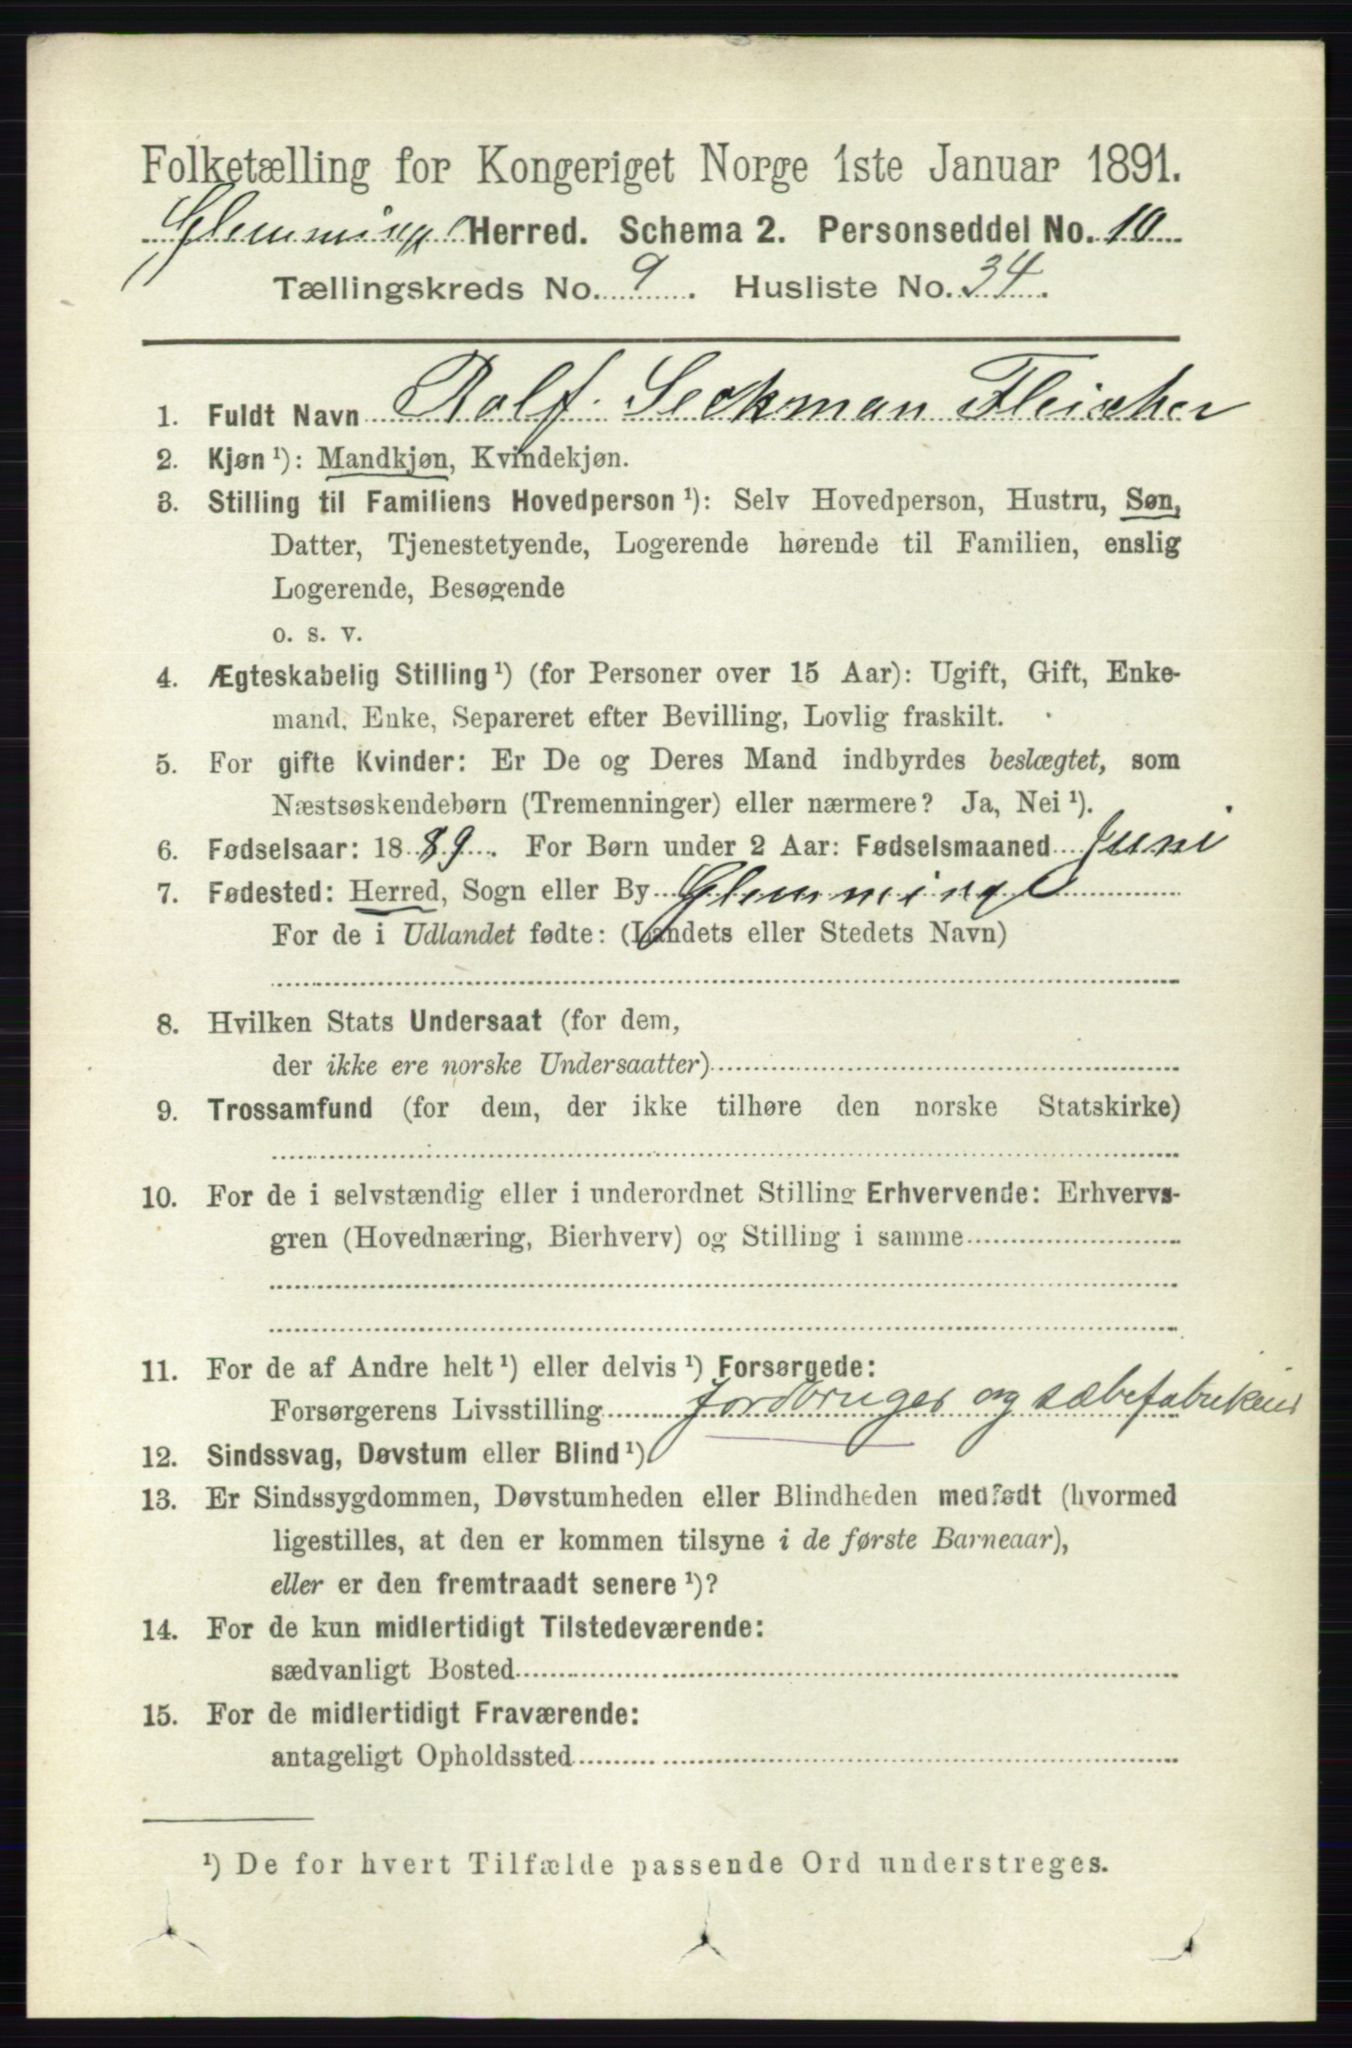 Folketælling for Kongeriget Norge 1ste Januar 1891.
Glemminge Herred. Schema 2. Personseddel No. 10
Tællingskreds No. 9. Husliste No. 34.
1. Fuldt Navn Rolf Seckman Fleischer
2. Kjøn ¹): Mandkjøn, Kvindekjøn.
3. Stilling til Familiens Hovedperson ¹): Selv Hovedperson, Hustru, Søn,
Datter, Tjenestetyende, Logerende hørende til Familien, enslig
Logerende, Besøgende
o. s. v.
4. Ægteskabelig Stilling ¹) (for Personer over 15 Aar): Ugift, Gift, Enke-
mand, Enke, Separeret efter Bevilling, Lovlig fraskilt.
5. For gifte Kvinder: Er De og Deres Mand indbyrdes beslægtet, som
Næstsøskendebørn (Tremenninger) eller nærmere? Ja, Nei ¹).
6. Fødselsaar: 1889. For Børn under 2 Aar: Fødselsmaaned Juni
7. Fødested: Herred, Sogn eller By Glemminge
For de i Udlandet fødte: (Landets eller Stedets Navn)
8. Hvilken Stats Undersaat (for dem,
der ikke ere norske Undersaatter)
9. Trossamfund (for dem, der ikke tilhøre den norske Statskirke)
10. For de i selvstændig eller i underordnet Stilling Erhvervende: Erhvervs-
gren (Hovednæring, Bierhverv) og Stilling i samme
11. For de af Andre helt ¹) eller delvis ¹) Forsørgede:
Forsørgerens Livsstilling Jordbruger og sæbefabrikant
12. Sindssvag, Døvstum eller Blind ¹)
13. Er Sindssygdommen, Døvstumheden eller Blindheden medfødt (hvormed
ligestilles, at den er kommen tilsyne i de første Barneaar),
eller er den fremtraadt senere ¹)?
14. For de kun midlertidigt Tilstedeværende:
sædvanligt Bosted
15. For de midlertidigt Fraværende:
antageligt Opholdssted
¹) De for hvert Tilfælde passende Ord understreges.